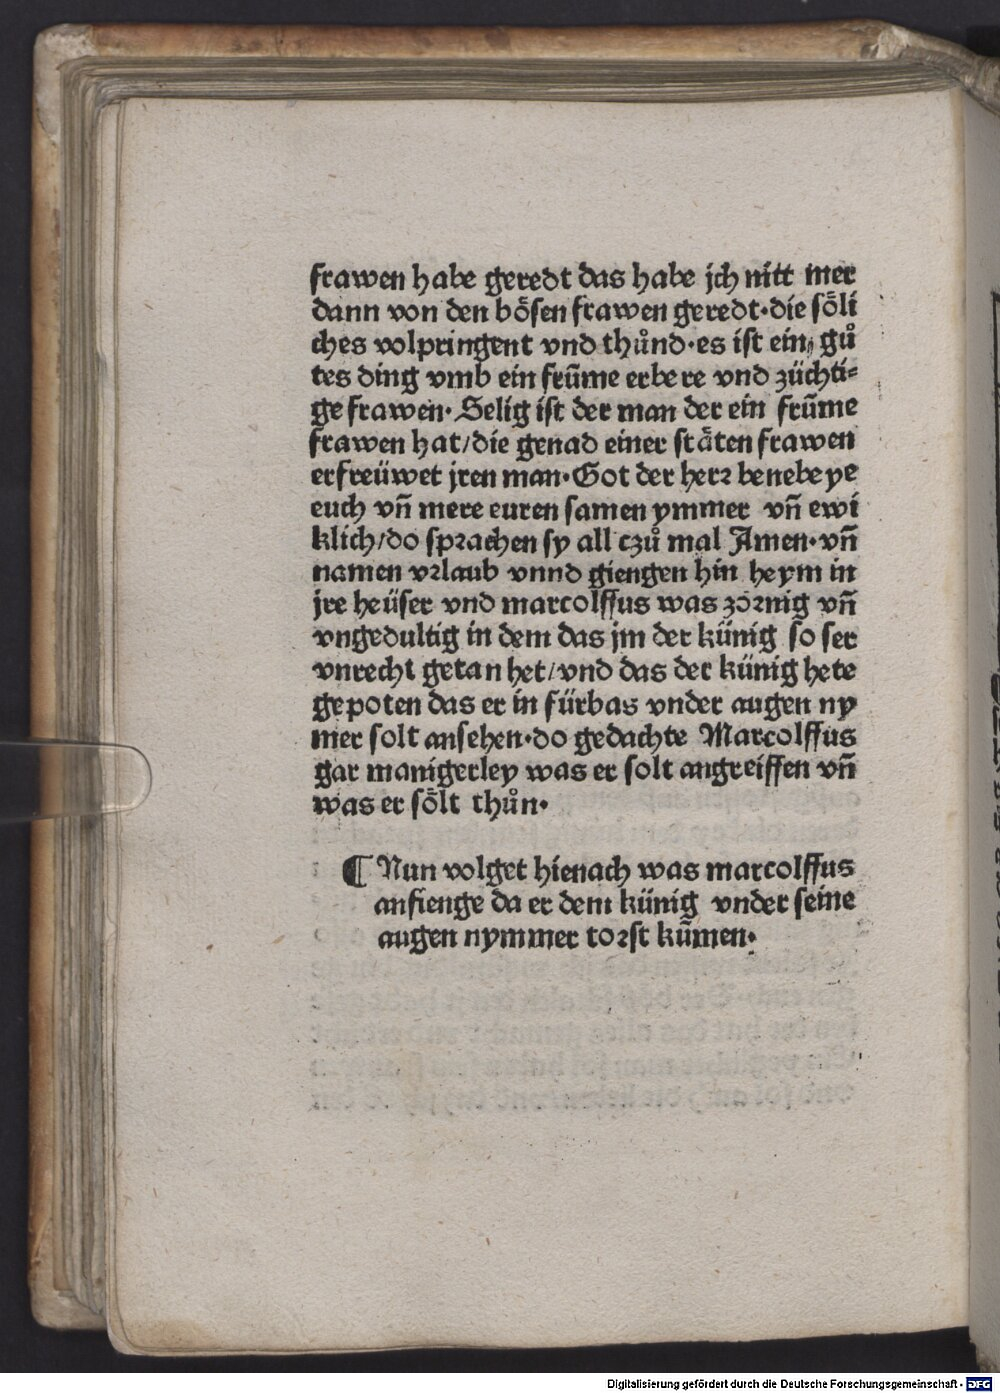 frawen habe geredt das habe jch nitt mer
dann von den bo᷑sen frawen geredt·die so᷑li
ches volpringent vnd thůnd·es ist ein gů
tes ding vmb ein frūme erbere vnd züchti⸗
ge frawen· Selig ist der man der ein frūme
frawen hat/die genad einer stäten frawen
erfreüwet jren man·Got der herꝛ benebeye
euch vn̄ mere euren samen ymmer vn̄ ewi
klich/do spꝛachen sy all czů mal Amen·vn̄
namen vꝛlaub vnnd giengen hin heym in
jre heüser vnd marcolffus was zoꝛnig vn̄
vngedultig in dem das jm der künig so ser
vnrecht getan het/vnd das der künig hete
gepoten das er in fürbas vnder augen ny
mer solt ansehen·do gedachte Marcolffus
gar manigerley was er solt angreiffen vn̄
was er sölt thůn·
¶ Nun volget hienach was marcolffus
anfienge da er dem künig vnder seine
augen nymmer toꝛst kūmen·
Digitalisierung gefördert durch die Deutsche Forschungsgemeinschaft - DFG